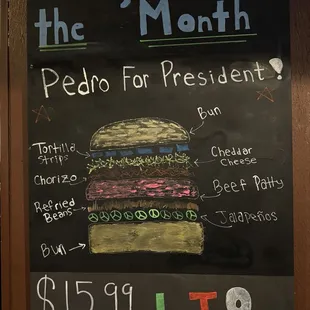 the Month
Pedro For President!
Bun
Tortilla
Strips
Cheddar
Cheese
Chorizo
Beef Patty
Refried
Beans
Jalapeños
Bun
$15.99 LTO